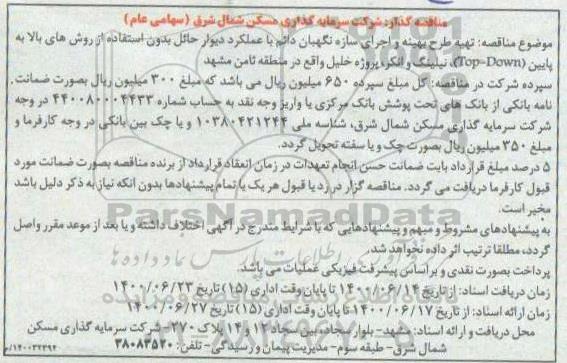 مناقصه گذار: شرکت سرمایه گذاری مسکن شمال شرق (سهامی عام)
موضوع مناقصه: تهیه طرح بهینه و اجرای سازه نگهبان دائم با عملکرد دیوار حائل بدون استفاده از روش های بالا به
پایین (Top-Down)، نیلینگ و انکر، پروژه خلیل واقع در منطقه ثامن مشهد
سپرده شرکت در مناقصه: کل مبلغ سپرده ۶۵۰ میلیون ریال می باشد که مبلغ ۳۰۰ میلیون ریال بصورت ضمانت
نامه بانکی از بانک های تحت پوشش بانک مرکزی یا واریز وجه نقد به حساب شماره ۴۴۰۰۸۰۰۰۴۴۳۳ در وجه
شرکت سرمایه گذاری مسکن شمال شرق، شناسه ملی ۱۰۳۸۰۴۲۱۲۴۴ و یا چک بین بانکی در وجه کارفرما و
مبلغ ۳۵۰ میلیون ریال بصورت چک و یا سفته تحویل گردد.
۵ درصد مبلغ قرارداد بابت ضمانت حسن انجام تعهدات در زمان انعقاد قرارداد از برنده مناقصه بصورت ضمانت مورد
قبول کارفرما دریافت می گردد. مناقصه گزار در رد یا قبول هر یک یا تمام پیشنهادها بدون آنکه نیاز به ذکر دلیل باشد
مخیر است.
به پیشنهادهای مشروط و مبهم و پیشنهادهایی که با شرایط مندرج در آگهی اختلاف داشته و یا بعد از موعد مقرر واصل
گردد، مطلقا ترتیب اثر داده نخواهد شد.
پرداخت بصورت نقدی و براساس پیشرفت فیزیکی عملیات می باشد.
زمان دریافت اسناد: از تاریخ ۱۴۰۰/۰۶/۱۴ تا پایان وقت اداری (۱۵) تاریخ ۱۴۰۰/۰۶/۲۳
زمان ارائه اسناد: از تاریخ ۱۴۰۰/۰۶/۱۷ تا پایان وقت اداری (۱۵) تاریخ ۱۴۰۰/۰۶/۲۷
محل دریافت و ارائه اسناد: مشهد- بلوار سجاد، بین سجاد ۱۲ و ۱۴ پلاک ۲۷۰- شرکت سرمایه گذاری مسکن
شمال شرق- طبقه سوم- مدیریت پیمان و رسیدگی- تلفن: ۳۸۰۸۳۵۲۰
/۱۴۰۰۳۲۹۴
ParsNamadData